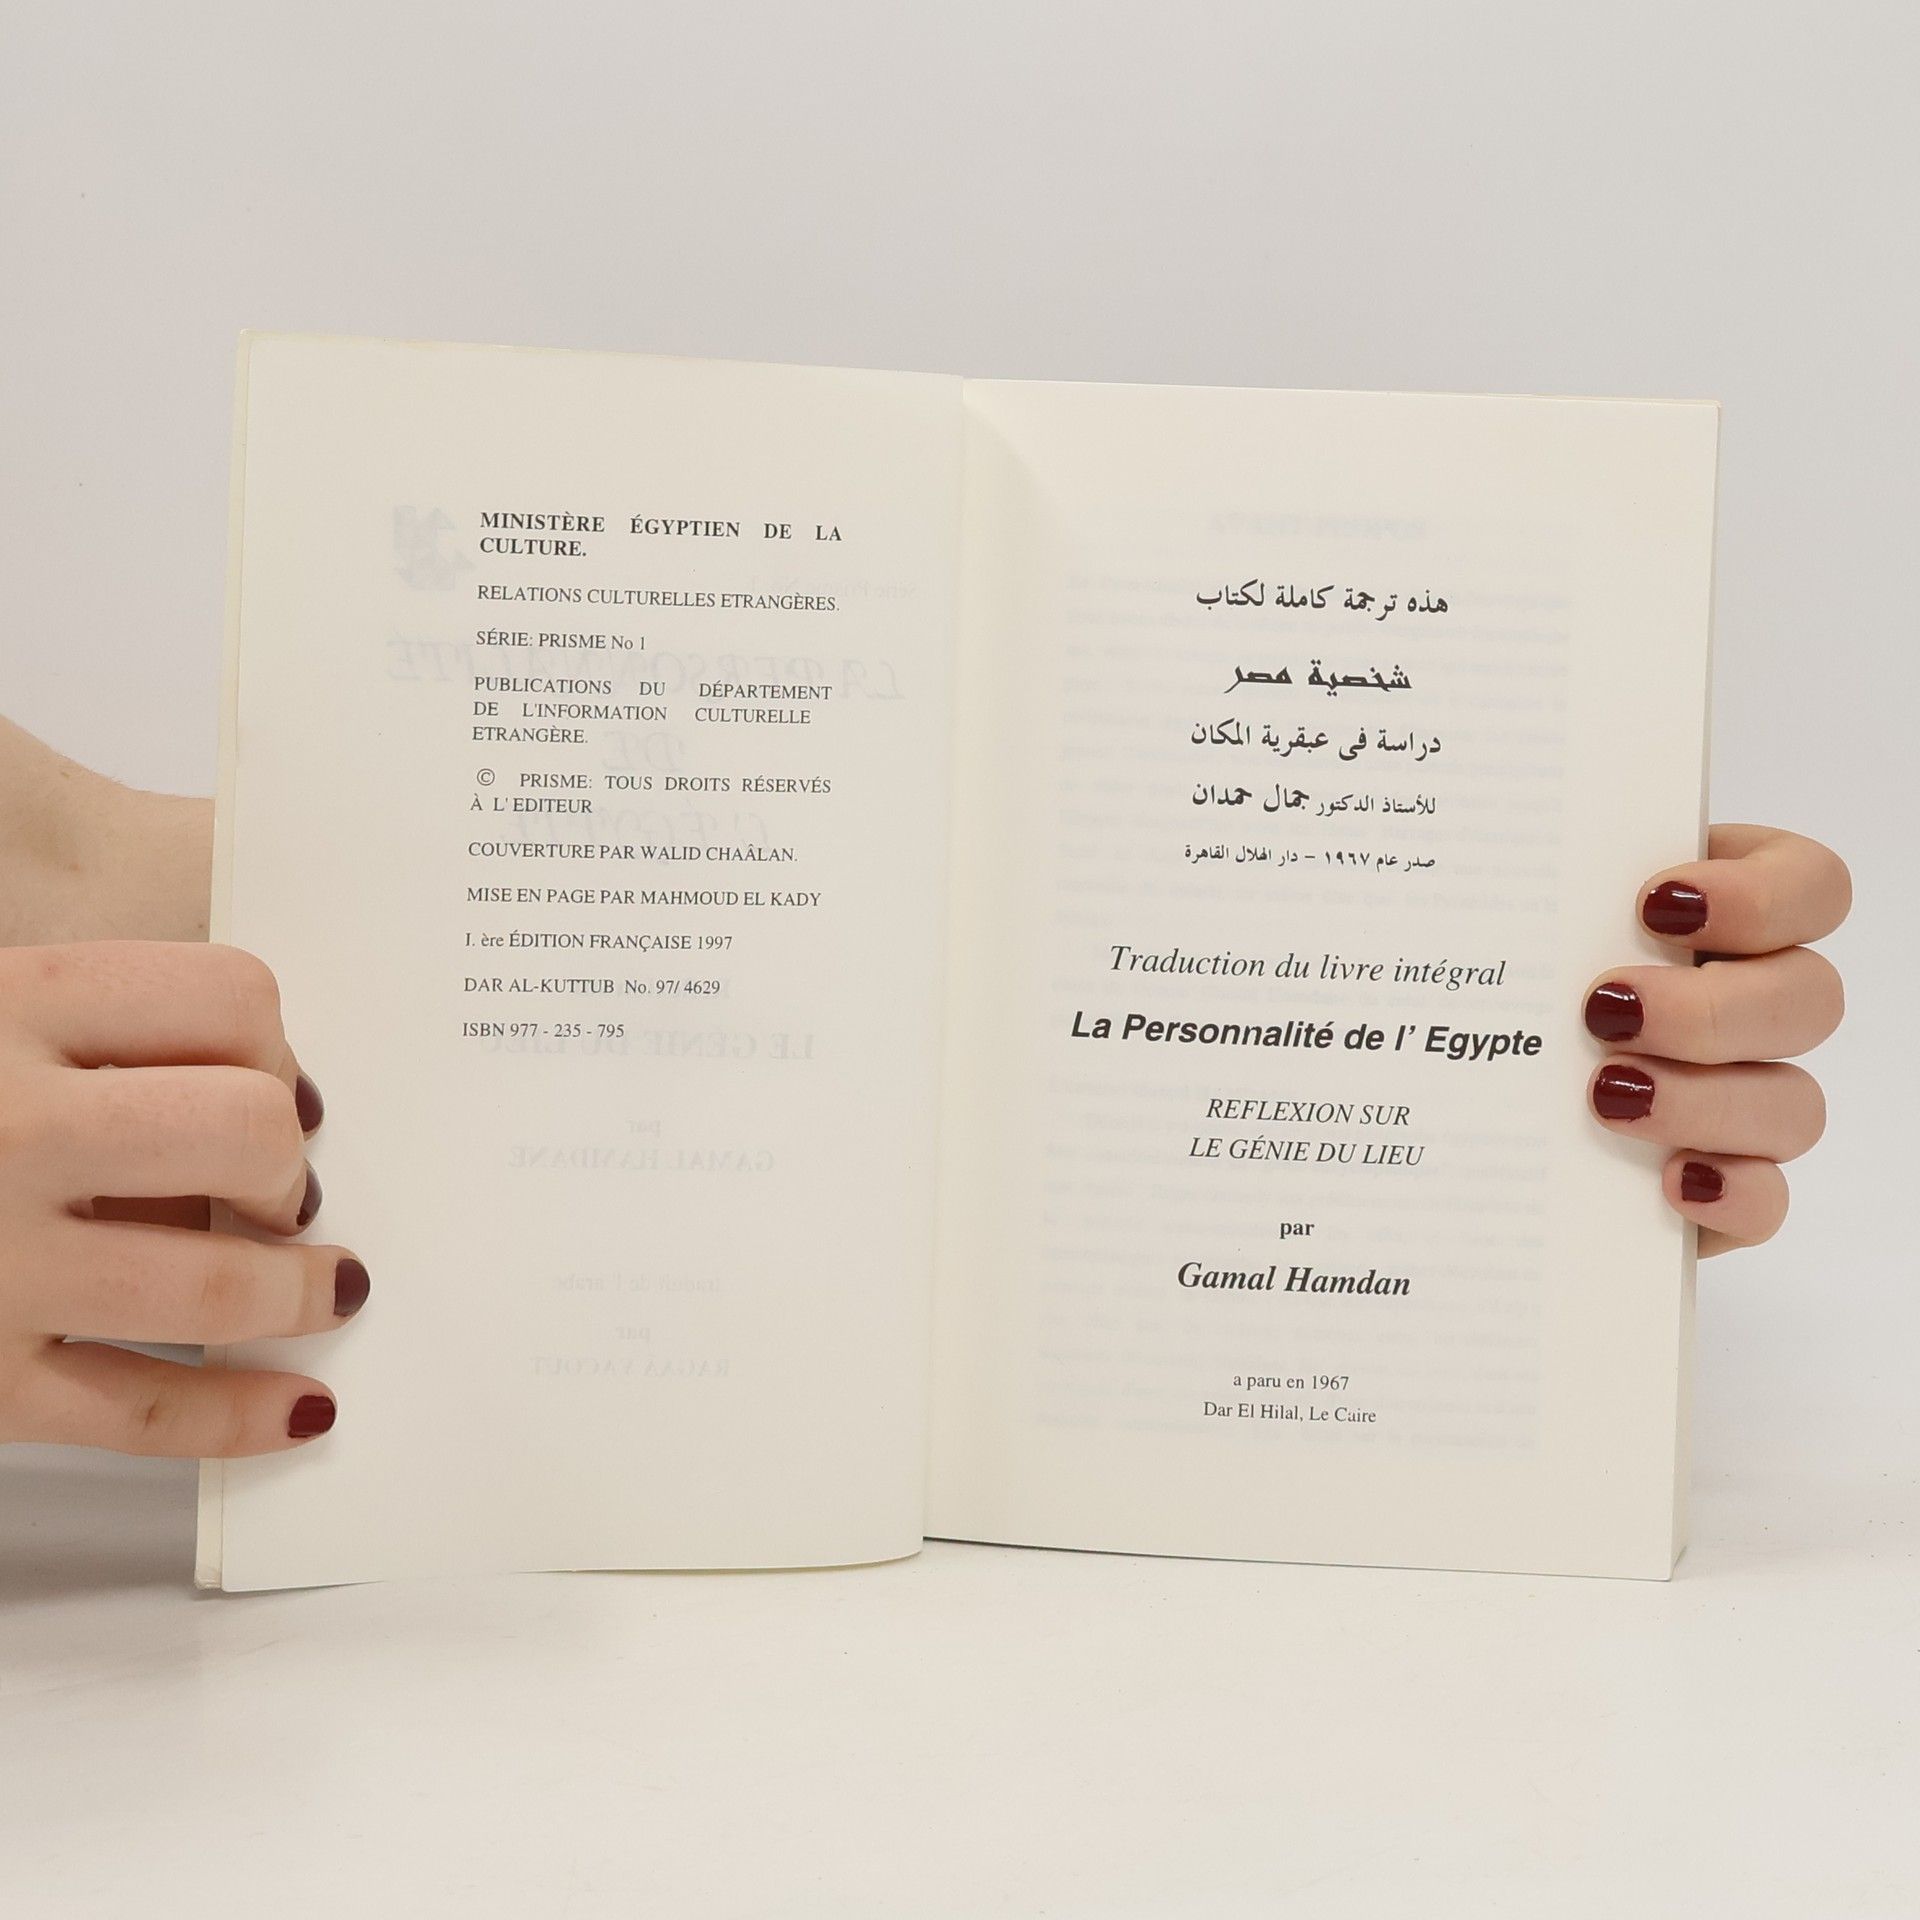 MINISTÈRE ÉGYPTIEN DE LA
CULTURE.
RELATIONS CULTURELLES ETRANGÈRES.
SÉRIE: PRISME No 1
PUBLICATIONS DU DÉPARTEMENT
DE L'INFORMATION CULTURELLE
ETRANGÈRE.
© PRISME: TOUS DROITS RÉSERVÉS
À L' EDITEUR
COUVERTURE PAR WALID CHAÂLAN.
MISE EN PAGE PAR MAHMOUD EL KADY
I. ère ÉDITION FRANÇAISE 1997
DAR AL-KUTTUB No. 97/ 4629
ISBN 977 - 235 - 795
هذه ترجمة كاملة لكتاب
شخصية مصر
دراسة فى عبقرية المكان
للأستاذ الدكتور جمال حمدان
صدر عام ١٩٦٧ – دار الهلال القاهرة
Traduction du livre intégral
La Personnalité de l' Egypte
REFLEXION SUR
LE GÉNIE DU LIEU
par
Gamal Hamdan
a paru en 1967
Dar El Hilal, Le Caire